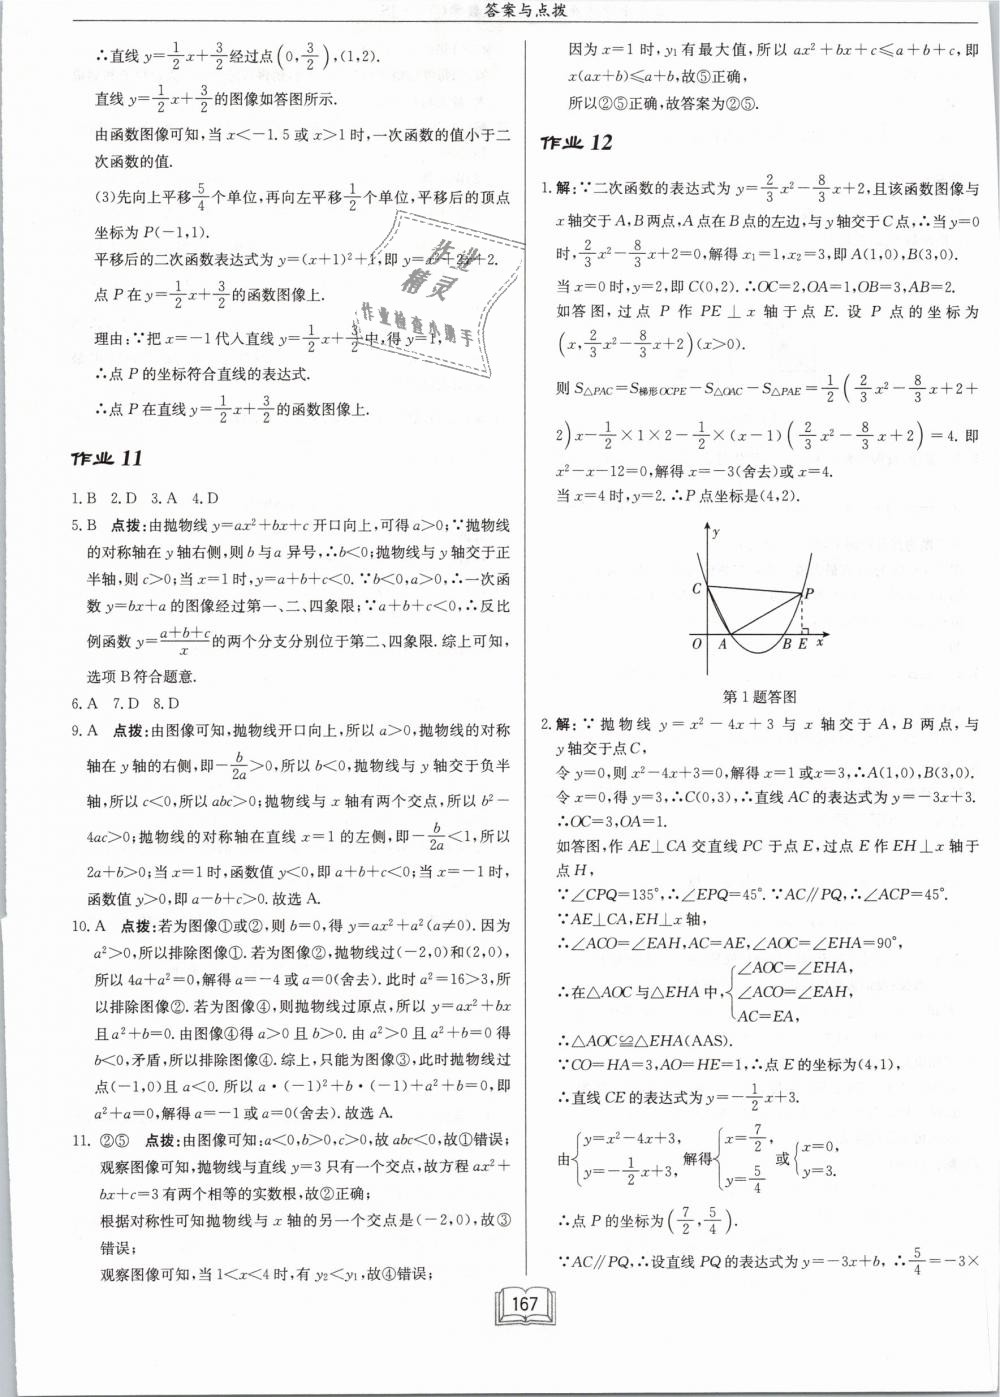 答案与点拨
∴直线 y=1/2x+3/2经过点(0,3/2),(1,2).
直线 y=1/2x+3/2的图像如答图所示.
由函数图像可知,当 x<-1.5 或 x>1 时,一次函数的值小于二
次函数的值.
(3)先向上平移5/4个单位,再向左平移1/2个单位,平移后的顶点
坐标为 P(-1,1).
平移后的二次函数表达式为 y=(x+1)²+1,即 y=x²+2x+2.
点 P 在 y=1/2x+3/2的函数图像上.
理由:∵把 x=-1代入直线 y=1/2x+3/2中,得 y=1,
∴点 P 的坐标符合直线的表达式.
∴点 P 在直线 y=1/2x+3/2的函数图像上.
作业 11
1. B 2. D 3. A 4. D
5. B 点拨:由抛物线 y=ax²+bx+c 开口向上,可得 a>0;∵抛物线
的对称轴在 y 轴右侧,则 b 与 a 异号,∴b<0;抛物线与 y 轴交于正
半轴,则 c>0;当 x=1 时,y=a+b+c<0. ∵b<0,a>0,∴一次函
数 y=bx+a 的图像经过第一、二、四象限;∵a+b+c<0,∴反比
例函数 y=(a+b+c)/x的两个分支分别位于第二、四象限. 综上可知,
选项 B 符合题意.
6. A 7. D 8. D
9. A 点拨:由图像可知,抛物线开口向上,所以 a>0,抛物线的对称
轴在 y 轴的右侧,即-b/2a>0,所以 b<0,抛物线与 y 轴交于负半
轴,所以 c<0,所以 abc>0;抛物线与 x 轴有两个交点,所以 b²-
4ac>0;抛物线的对称轴在直线 x=1 的左侧,即-b/2a<1,所以
2a+b>0;当 x=1 时,函数值 y<0,即 a+b+c<0;当 x=-1 时,
函数值 y>0,即 a-b+c>0. 故选 A.
10. A 点拨:若为图像①或②,则 b=0,得 y=ax²+a²(a≠0). 因为
a²>0,所以排除图像①. 若为图像②,抛物线过(-2,0)和(2,0),
所以 4a+a²=0,解得 a=-4 或 a=0(舍去). 此时 a²=16>3,所
以排除图像②. 若为图像④,则抛物线过原点,所以 y=ax²+bx
且 a²+b=0. 由图像④得 a>0 且 b>0. 由 a²>0 且 a²+b=0 得
b<0,矛盾,所以排除图像④. 综上,只能为图像③,此时抛物线过
点(-1,0)且 a<0. 所以 a·(-1)²+b·(-1)+a²+b=0,即
a²+a=0,解得 a=-1 或 a=0(舍去). 故选 A.
11. ②⑤ 点拨:由图像可知:a<0,b>0,c>0,故 abc<0,故①错误;
观察图像可知,抛物线与直线 y=3 只有一个交点,故方程 ax²+
bx+c=3 有两个相等的实数根,故②正确;
根据对称性可知抛物线与 x 轴的另一个交点是(-2,0),故③
错误;
观察图像可知,当 1<x<4 时,有 y₂<y₁,故④错误;
因为 x=1 时,y₁有最大值,所以 ax²+bx+c≤a+b+c,即
x(ax+b)≤a+b,故⑤正确,
所以②⑤正确,故答案为②⑤.
作业 12
1. 解:∵二次函数的表达式为 y=2/3x²-8/3x+2,且该函数图像与
x 轴交于 A,B 两点,A 点在 B 点的左边,与 y 轴交于 C 点,∴当 y=0
时,2/3x²-8/3x+2=0,解得 x₁=1,x₂=3,即 A(1,0),B(3,0).
当 x=0 时,y=2,即 C(0,2). ∴OC=2,OA=1,OB=3,AB=2.
如答图,过点 P 作 PE⊥x 轴于点 E. 设 P 点的坐标为
(x,2/3x²-8/3x+2)(x>0).
则 S△PAC=S梯形OCPE-S△OAC-S△PAE=1/2(2/3x²-8/3x+2+
2)x-1/2×1×2-1/2×(x-1)(2/3x²-8/3x+2)=4. 即
x²-x-12=0,解得 x=-3(舍去)或 x=4.
当 x=4 时,y=2. ∴P 点坐标是(4,2).
y
C
P
O A B E x
第 1 题答图
2. 解:∵抛物线 y=x²-4x+3 与 x 轴交于 A,B 两点,与
y 轴交于点 C,
令 y=0,则 x²-4x+3=0,解得 x=1 或x=3,∴A(1,0),B(3,0).
令 x=0,得 y=3,∴C(0,3),∴直线 AC 的表达式为 y=-3x+3.
∴OC=3,OA=1.
如答图,作 AE⊥CA 交直线 PC 于点 E,过点 E 作 EH⊥x 轴于
点 H,
∵∠CPQ=135°,∴∠EPQ=45°. ∵AC∥PQ,∴∠ACP=45°.
∵AE⊥CA,EH⊥x 轴,
∴∠ACO=∠EAH,AC=AE,∠AOC=∠EHA=90°,
∴在△AOC 与△EHA 中,{∠AOC=∠EHA,
∠ACO=∠EAH,
AC=EA,
∴△AOC≌△EHA(AAS).
∵CO=HA=3,AO=HE=1,∴点 E 的坐标为(4,1),
∴直线 CE 的表达式为 y=-1/2x+3.
由{y=x²-4x+3, y=-1/2x+3, 解得{x=7/2, y=5/4 或{x=0, y=3.
∴点 P 的坐标为(7/2,5/4).
∵AC∥PQ,∴设直线 PQ 的表达式为 y=-3x+b,∴5/4=-3×
167
作业
精灵
作业检查小助手